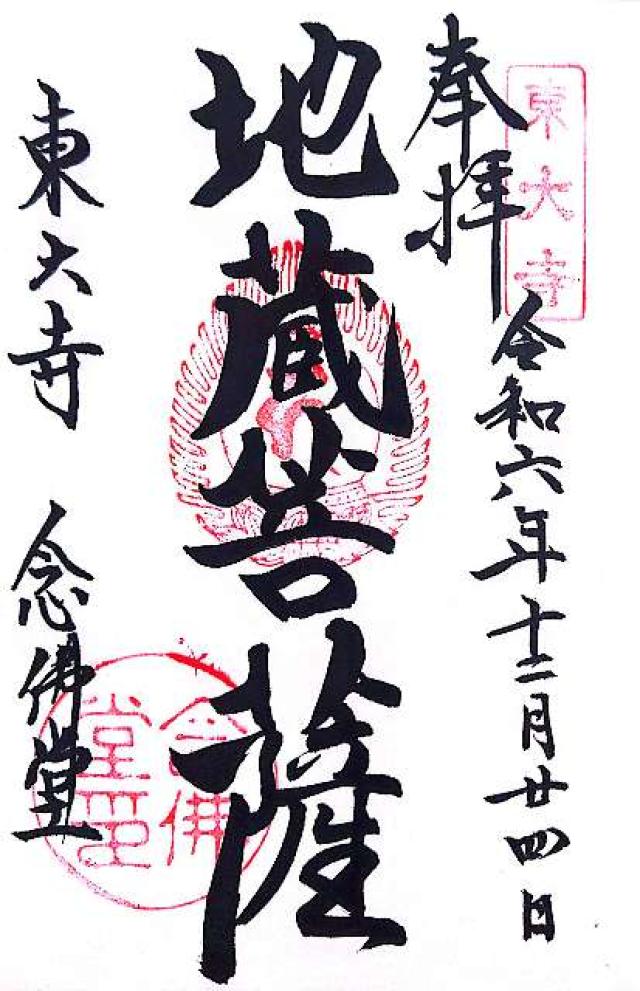 東大寺
奉拝
令和六年十二月廿四日
地蔵菩薩
東大寺 念佛堂
念佛堂印